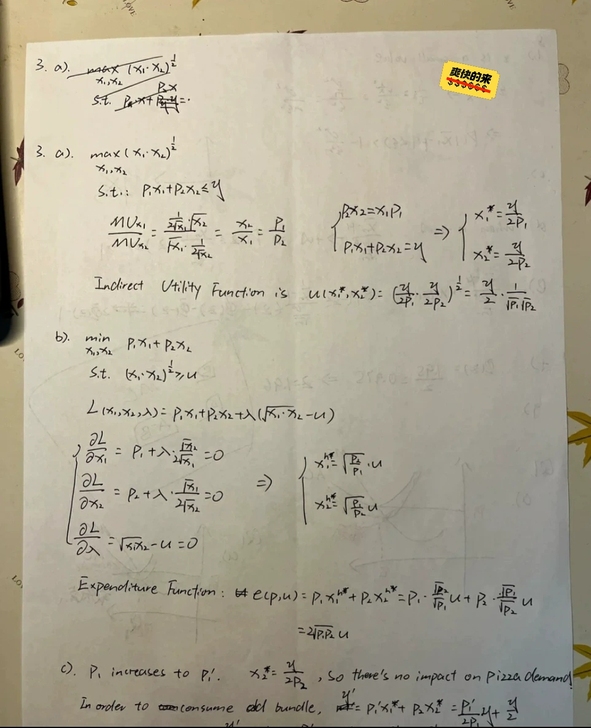 3. a). max (x₁·x₂)^½
x₁,x₂
s.t.
爽快的来
3. a). max (x₁·x₂)^½
x₁,x₂
s.t.: P₁x₁+P₂x₂≤y
MUx₁/MUx₂ = (1/(2√x₁)·√x₂)/(√x₁·1/(2√x₂)) = x₂/x₁ = P₁/P₂ { P₂x₂=x₁P₁, P₁x₁+P₂x₂=y ⇒ { x₁*=y/2P₁, x₂*=y/2P₂
Indirect Utility Function is u(x₁*,x₂*)=(y/2P₁·y/2P₂)^½=y/2·1/(√P₁√P₂)
b). min P₁x₁+P₂x₂
x₁,x₂
s.t. (x₁·x₂)^½≥u
L(x₁,x₂,λ)=P₁x₁+P₂x₂+λ(√x₁·x₂-u)
∂L/∂x₁ = P₁+λ·√x₂/(2√x₁)=0
∂L/∂x₂ = P₂+λ·√x₁/(2√x₂)=0
∂L/∂λ =√x₁x₂-u=0
⇒ { x₁^h*=√(P₂/P₁)·u
x₂^h*=√(P₁/P₂)u
Expenditure Function: e(p,u)=P₁x₁^h*+P₂x₂^h*=P₁·√P₂/√P₁ u+P₂·√P₁/√P₂ u
=2√P₁P₂ u
c). P₁ increases to P₁'. x₂*=y/2P₂, so there's no impact on pizza demand!
In order to consume old bundle, y'=P₁'x₁*+P₂x₂*=P₁'/2P₁ y+y/2